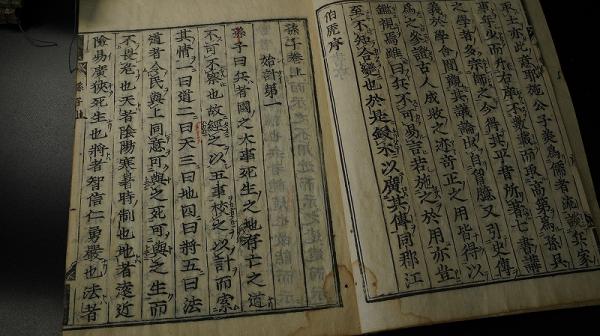 取士亦此意耶施公子美為儒者流談兵家
事年少而升右庠不數載而取高第為孫吳
之學者多宗師之今得其平昔所著七書講
義於學舍間觀其議論出自胸臆又引史傳
為之參證古人成敗之迹奇正之用皆得以
鑑視焉雖曰兵不可易言若施之於用亦豈
至不知合變也於是鋟木以廣其傳同郡江
伯虎序
孫子卷上
始計第一
孫子曰兵者國之大事死生之地存亡之道
不可不察也故經之以五事校之以計而索
其情一曰道二曰天三曰地四曰將五曰法
道者令民與上同意可與之死可與之生而
不畏危也天者陰陽寒暑時制也地者遠近
險易廣狹死生也將者智信仁勇嚴也法者
孫子上